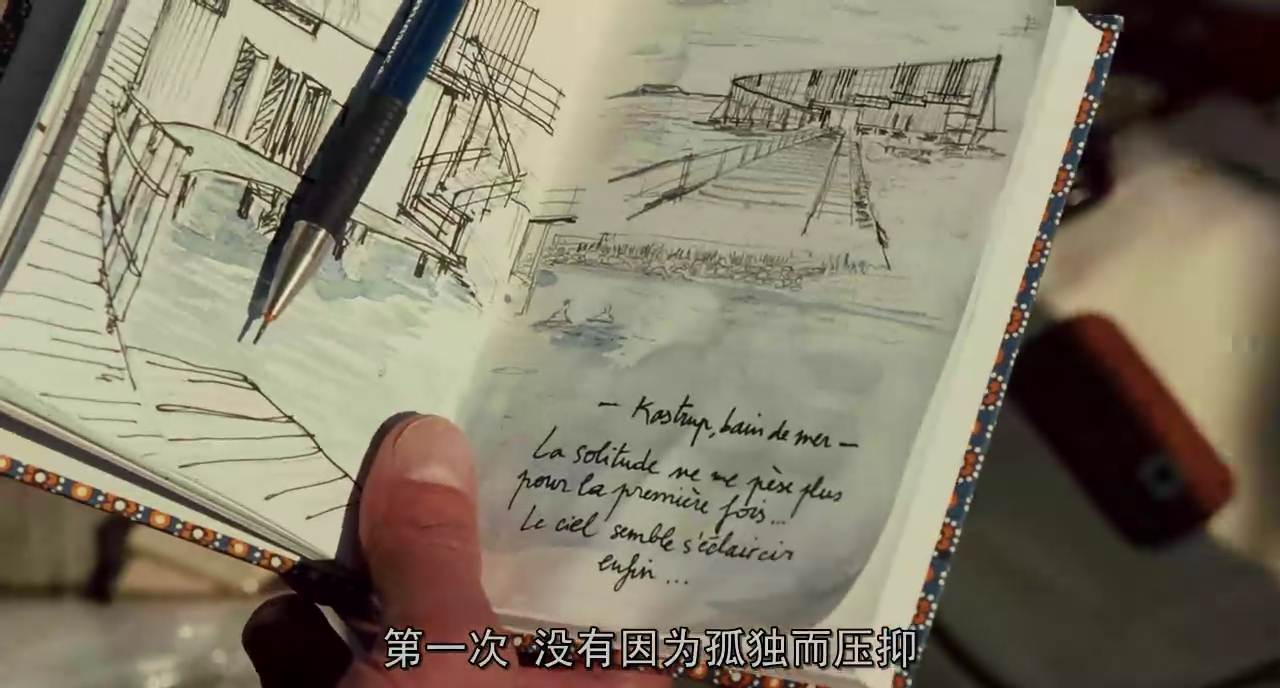 — Kastrup, bain de mer —
La solitude ne me pèse plus
pour la première fois...
Le ciel semble s'éclaircir
enfin ...
第一次 没有因为孤独而压抑